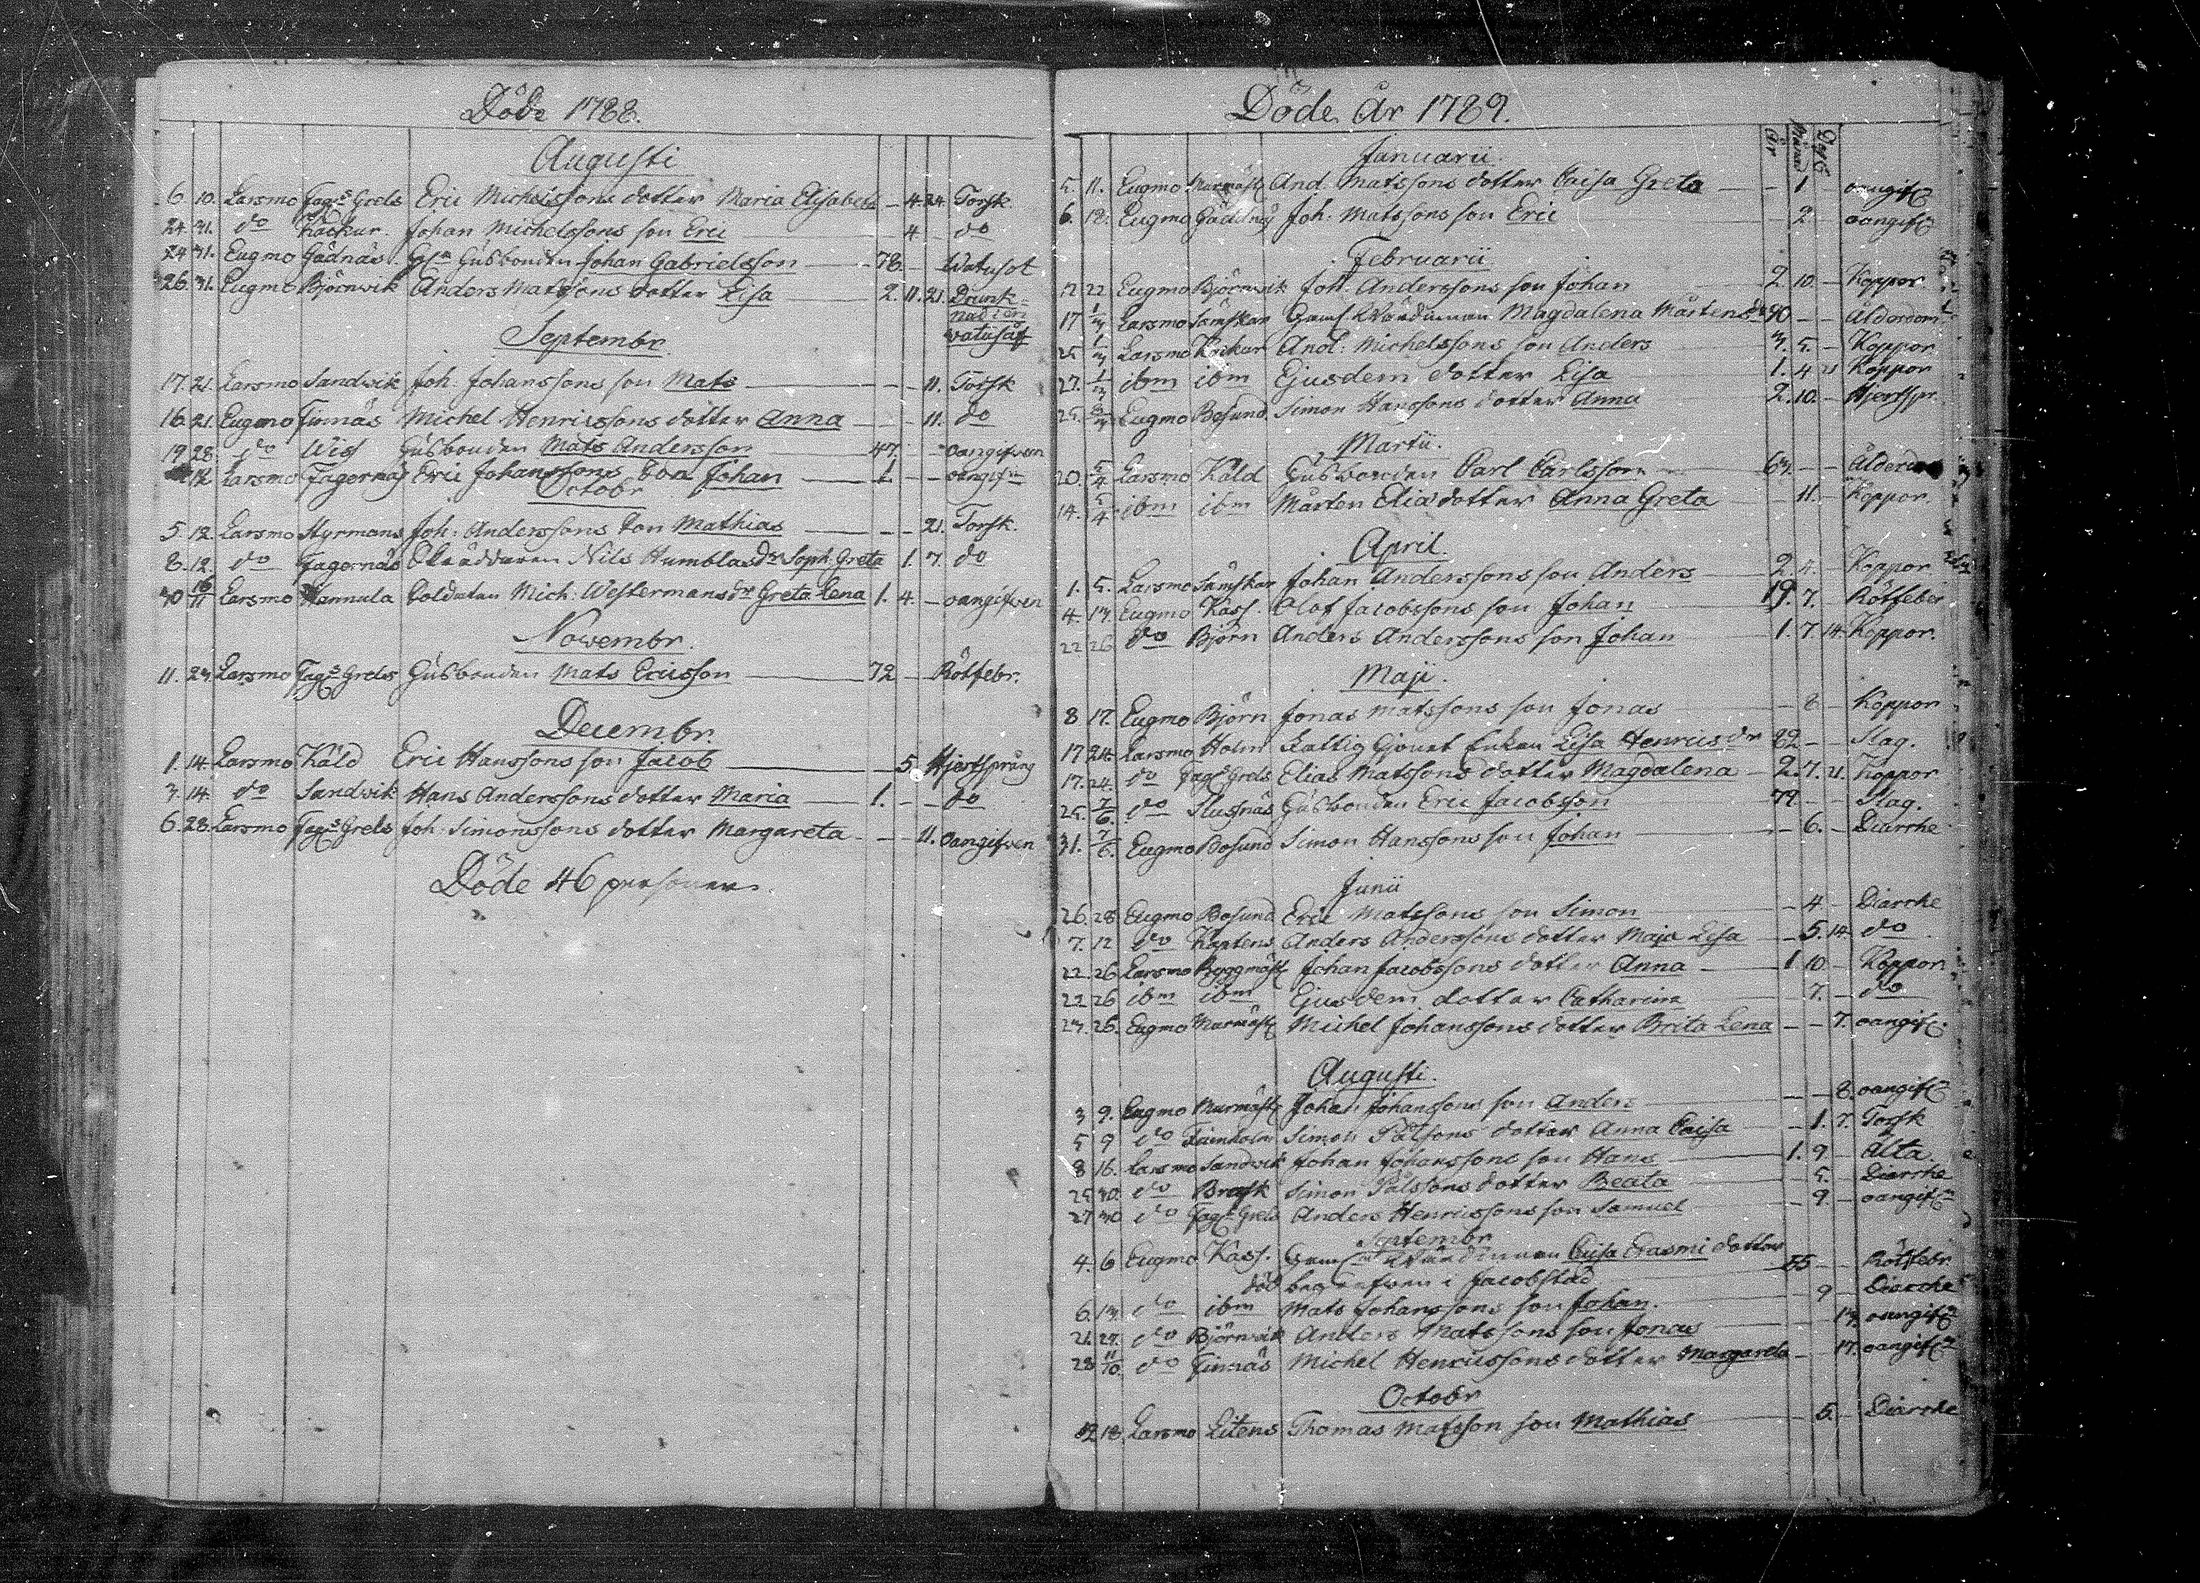 Döde 1788.
Augusti
6. 10. Larsmo Fag:s Grels Eric Michelssons dotter Maria Elisabeth — 4. 24. Torsk
24. 31. do Käckur Johan Michelssons son Eric — 4. — do
24 31. Eugmo Gädnäs Husbonden Johan Gabrielsson — 78. — Watusot
26. 31. Eugmo Björnwik Anders Matssons dotter Lisa — 2. 11. 21. Drunk=
nad i en
watusåf
Septembr.
17. 21. Larsmo Sandwik Joh: Johanssons son Mats — — 11. Torsk
16. 21. Eugmo Finnäs Michel Henricssons dotter Anna — — 11. do
19 28. do Wist Husbonden Mats Andersson — 47. — oangifwen
12 Larsmo Fagernäs Eric Johanssons son Johan — 1. — — oangifn
Octobr
5. 12. Larsmo Styrmans Joh: Anderssons son Mathias — — 21. Torsk.
8. 12. do Fagernäs Skräddaren Nils Humblas dr Soph: Greta 1. 7. do
30 16/11 Larsmo Hannula Soldaten Mich: Westermans dr Greta Lena 1. 4. — oangifwen
Novembr.
11. 23. Larsmo Fag:s Grels Husbonden Mats Ericsson — 72 — Rötfebr.
Decembr.
1. 14. Larsmo Käld Eric Hanssons son Jacob — 5. Hjertsprång
3. 14. do Sandwik Hans Anderssons dotter Maria — 1. — — do
6. 28. Larsmo Fag:s Grels Joh: Simonssons dotter Margareta — — 11. oangifwen
Döde 46 personer.
Döde År 1789.
År Månad Dag
Januarii.
5. 11. Eugmo Murmäst And: Matssons dotter Caisa Greta — — 1. oangif
6. 18. Eugmo Gädnäs Joh: Matssons son Eric — 2 — oangif
Februarii
12 22 Eugmo Björnwik Joh: Anderssons son Johan 2 10. — Koppor
17 1/3 Larsmo Sämskar Gaml. Wärdinnan Magdalena Mårtensdr 90 — — Ålderdom
25. 1/3 Larsmo Käikar And: Michelssons son Anders 3. 5. — Koppor
27. 1/3 ibm ibm Ejusdem dotter Lisa 1. 4 21 Koppor
25. 8/3 Eugmo Bosund Simon Hanssons dotter Anna 2. 10. — Hjertspr.
Martii.
20. 5/4 Larsmo Käld Husbonden Carl Carlsson — 63. — — Ålderd
14. 5/4 ibm ibm Mårten Elia dotter Anna Greta — 11. — Koppor.
April.
1. 5. Larsmo Sämskar Johan Anderssons son Anders — 2 4. — Koppor
4. 13. Eugmo Kass. Olof Jacobssons son Johan — 19. 7. — Rötfeber
22 26 do Björn Anders Anderssons son Johan 1. 7. 14. Koppor.
Maji.
8 17. Eugmo Björn Jonas Matssons son Jonas — 8 — Koppor
17 24. Larsmo Holm Fattig Hjonet Enkan Lisa Henrics dr 82 — — Slag.
17. 24. do Fag:s Grels Elias Matssons dotter Magdalena — 2. 7. 21. Koppor
25. 7/6. do Slusnäs Husbonden Eric Jacobsson 79 — — Slag.
31. 7/6. Eugmo Bosund Simon Hanssons son Johan — 6. — Diarrhe
Junii
26. 28 Eugmo Bosund Eric Matssons son Simon — 4 — Diarrhe
7. 12 do Kaptens Anders Anderssons dotter Maja Lisa — 5. 14. do
22. 26 Larsmo Byggmäst Johan Jacobssons dotter Anna — 1. 10. — Koppor
22 26 ibm ibm Ejusdem dotter Catharina 7. — do
23. 26. Eugmo Murmäst Michel Johanssons dotter Brita Lena — — 7. oangif.
Augusti.
3 9. Eugmo Murmäst Johan Johanssons son Anders — — 8. oangif
5 9 do Finnholm Simon Pålsons dotter Anna Caisa — 1. 7. Torsk
8 16. Larsmo Sandwik Johan Johanssons son Hans — 1. 9 — Alta.
25 30. do Brask Simon Pålssons dotter Beata — 5. — Diarrhe
27 30 do Fag:s Grels Anders Henricssons son Samuel — 9. — oangifn
Septembr
4. 6 Eugmo Kass. Gaml. Wärdinnan Caisa Erasmi dotter 55 — — Rötfebr.
död begrafwen i Jacobstad
6. 13. do ibm Mats Johanssons son Johan. — 9 — Diarrhe
21. 27. do Björnwik Anders Matssons son Jonas — 13. oangif
28 11/10. do Finnäs Michel Henricssons dotter Margareta — — 17. oangif
Octobr
12 18. Larsmo Litens Thomas Matsson son Mathias — 5. — Diarrhe